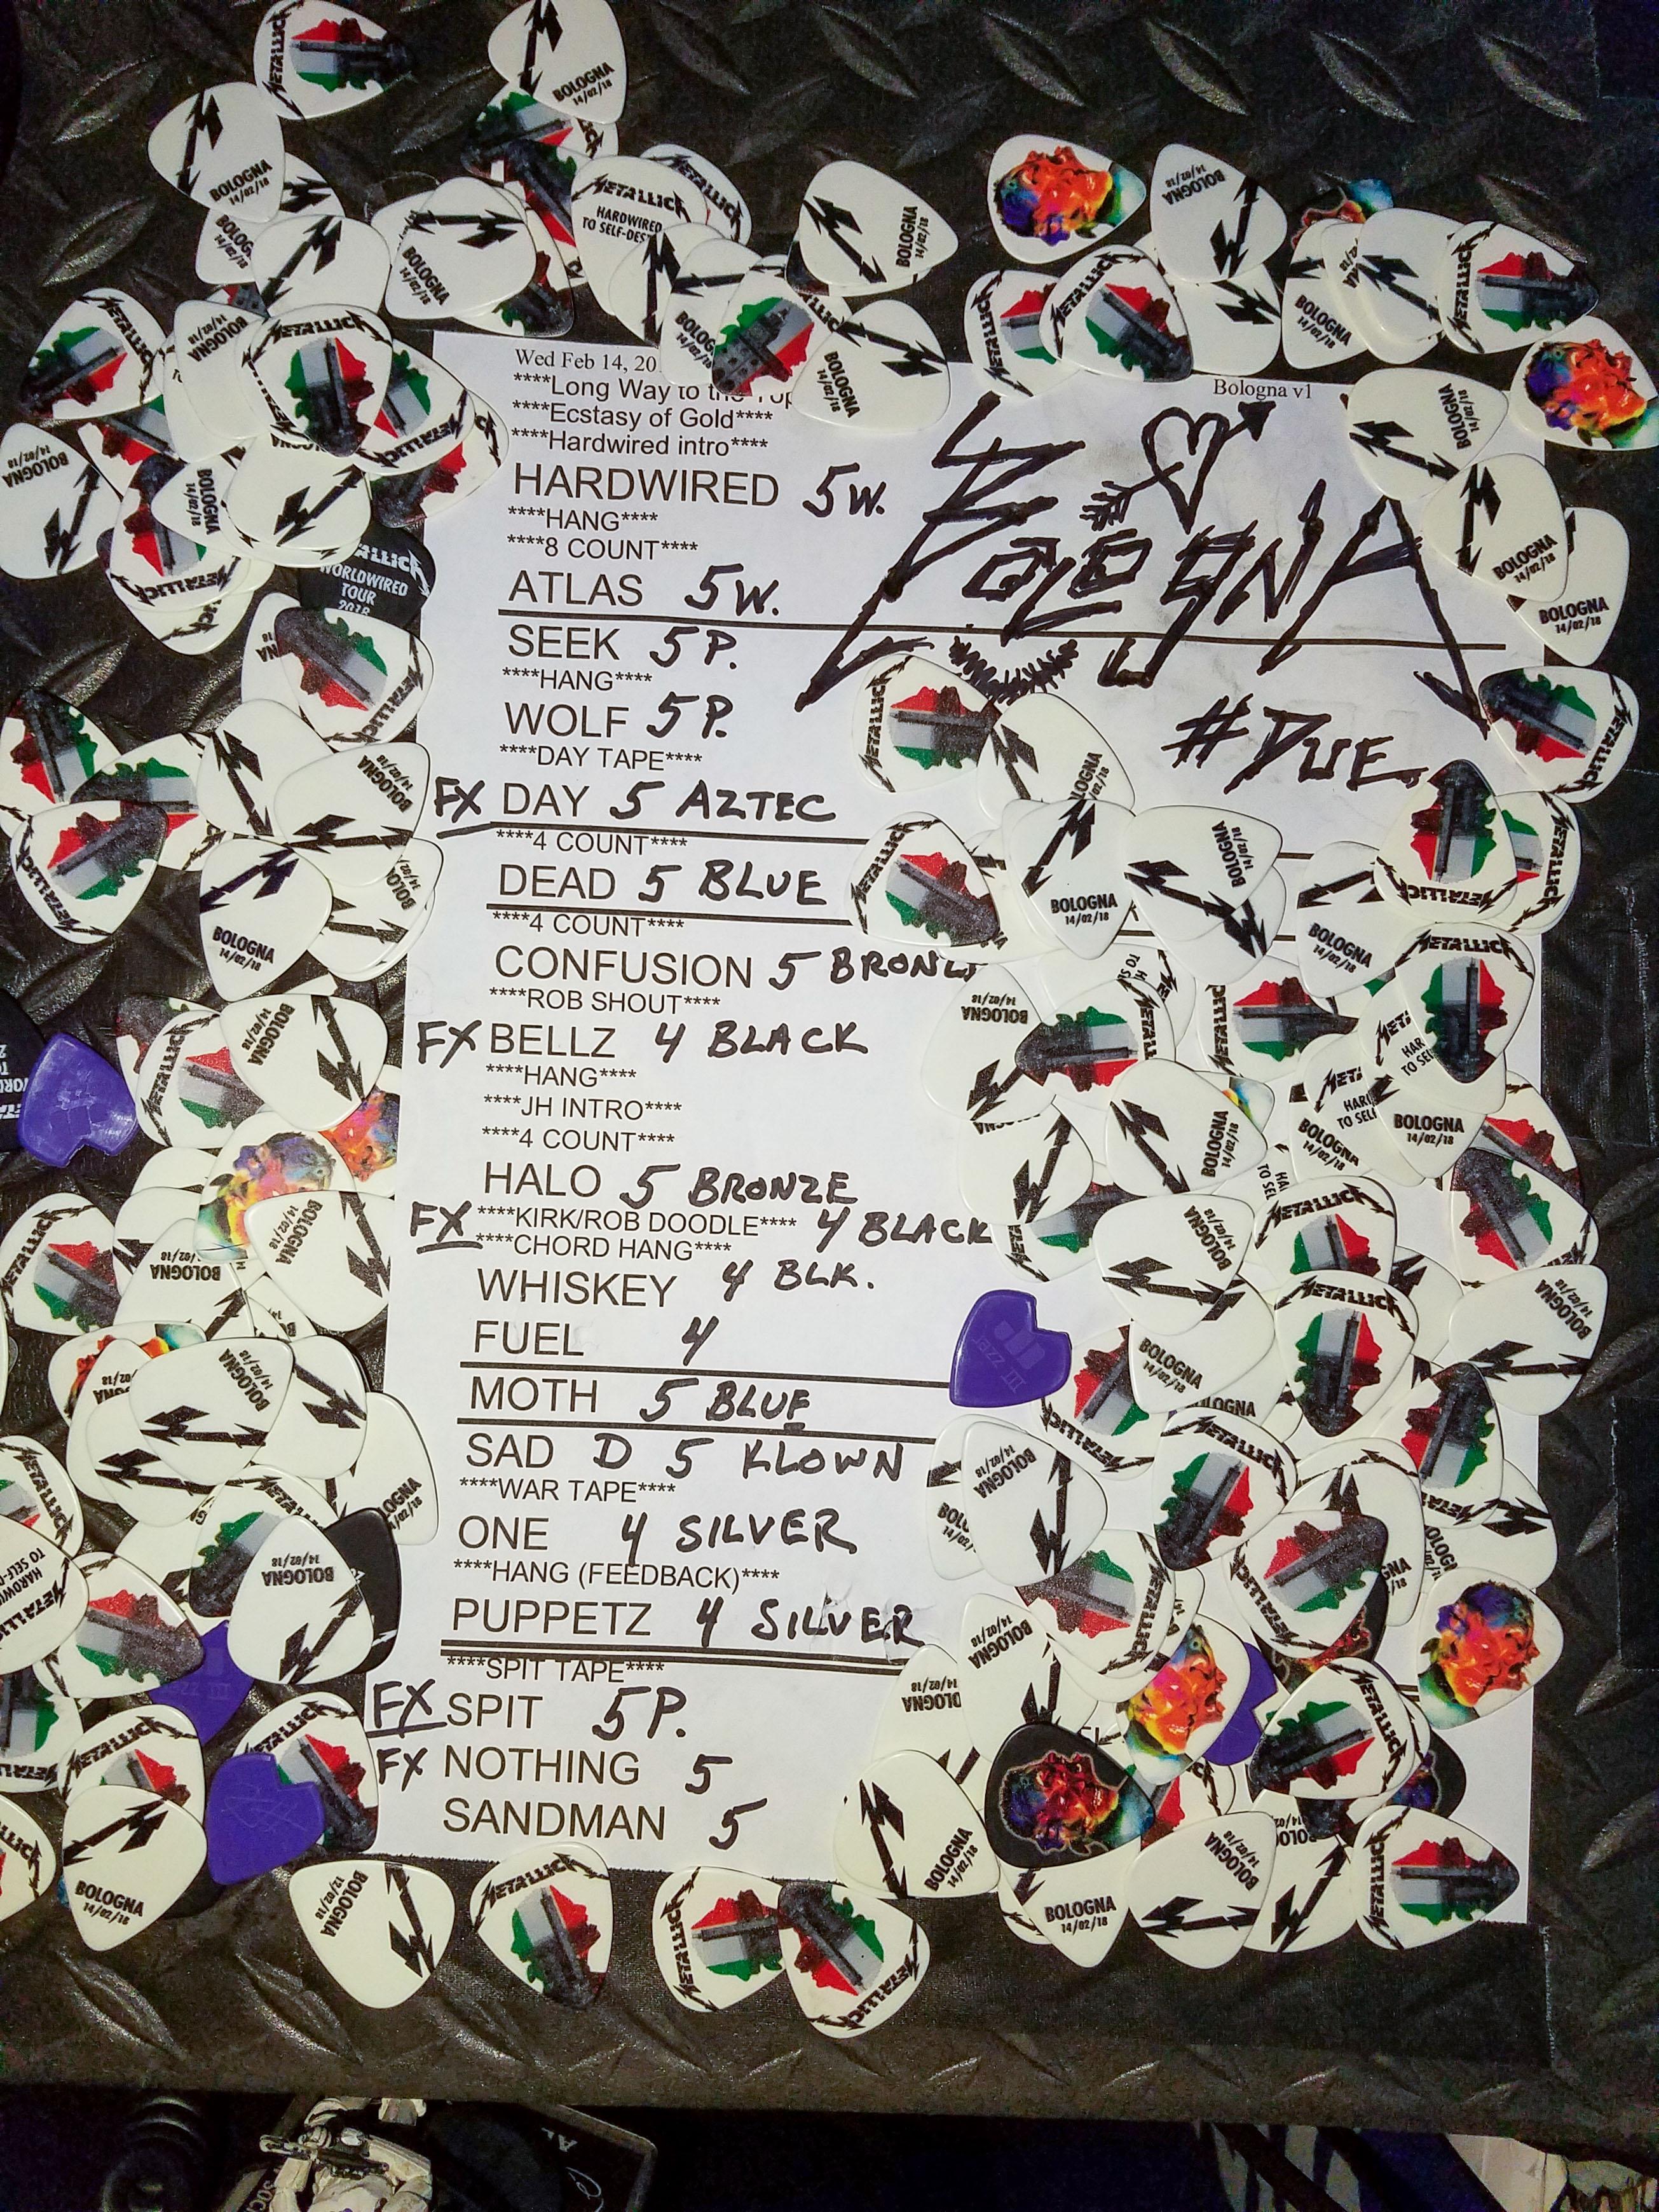 Wed Feb 14, 20
Bologna v1
****Long Way to the Top
****Ecstasy of Gold****
****Hardwired intro****
HARDWIRED 5W.
****HANG****
****8 COUNT****
BOLOGNA
ATLAS 5W.
SEEK 5P.
****HANG****
WOLF 5P.
#DUE
****DAY TAPE****
FX DAY 5 AZTEC
****4 COUNT****
DEAD 5 BLUE
****4 COUNT****
CONFUSION 5 BRONZE
****ROB SHOUT****
FX BELLZ 4 BLACK
****HANG****
****JH INTRO****
****4 COUNT****
HALO 5 BRONZE
FX ****KIRK/ROB DOODLE**** 4 BLACK
****CHORD HANG****
WHISKEY 4 BLK.
FUEL 4
MOTH 5 BLUE
SAD D 5 KLOWN
****WAR TAPE****
ONE 4 SILVER
****HANG (FEEDBACK)****
PUPPETZ 4 SILVER
****SPIT TAPE****
FX SPIT 5P.
FX NOTHING 5
SANDMAN 5
METALLICA
BOLOGNA
14/02/18
METALLICA
HARDWIRED
TO SELF-DES
METALLICA
WORLDWIRED
TOUR
2018